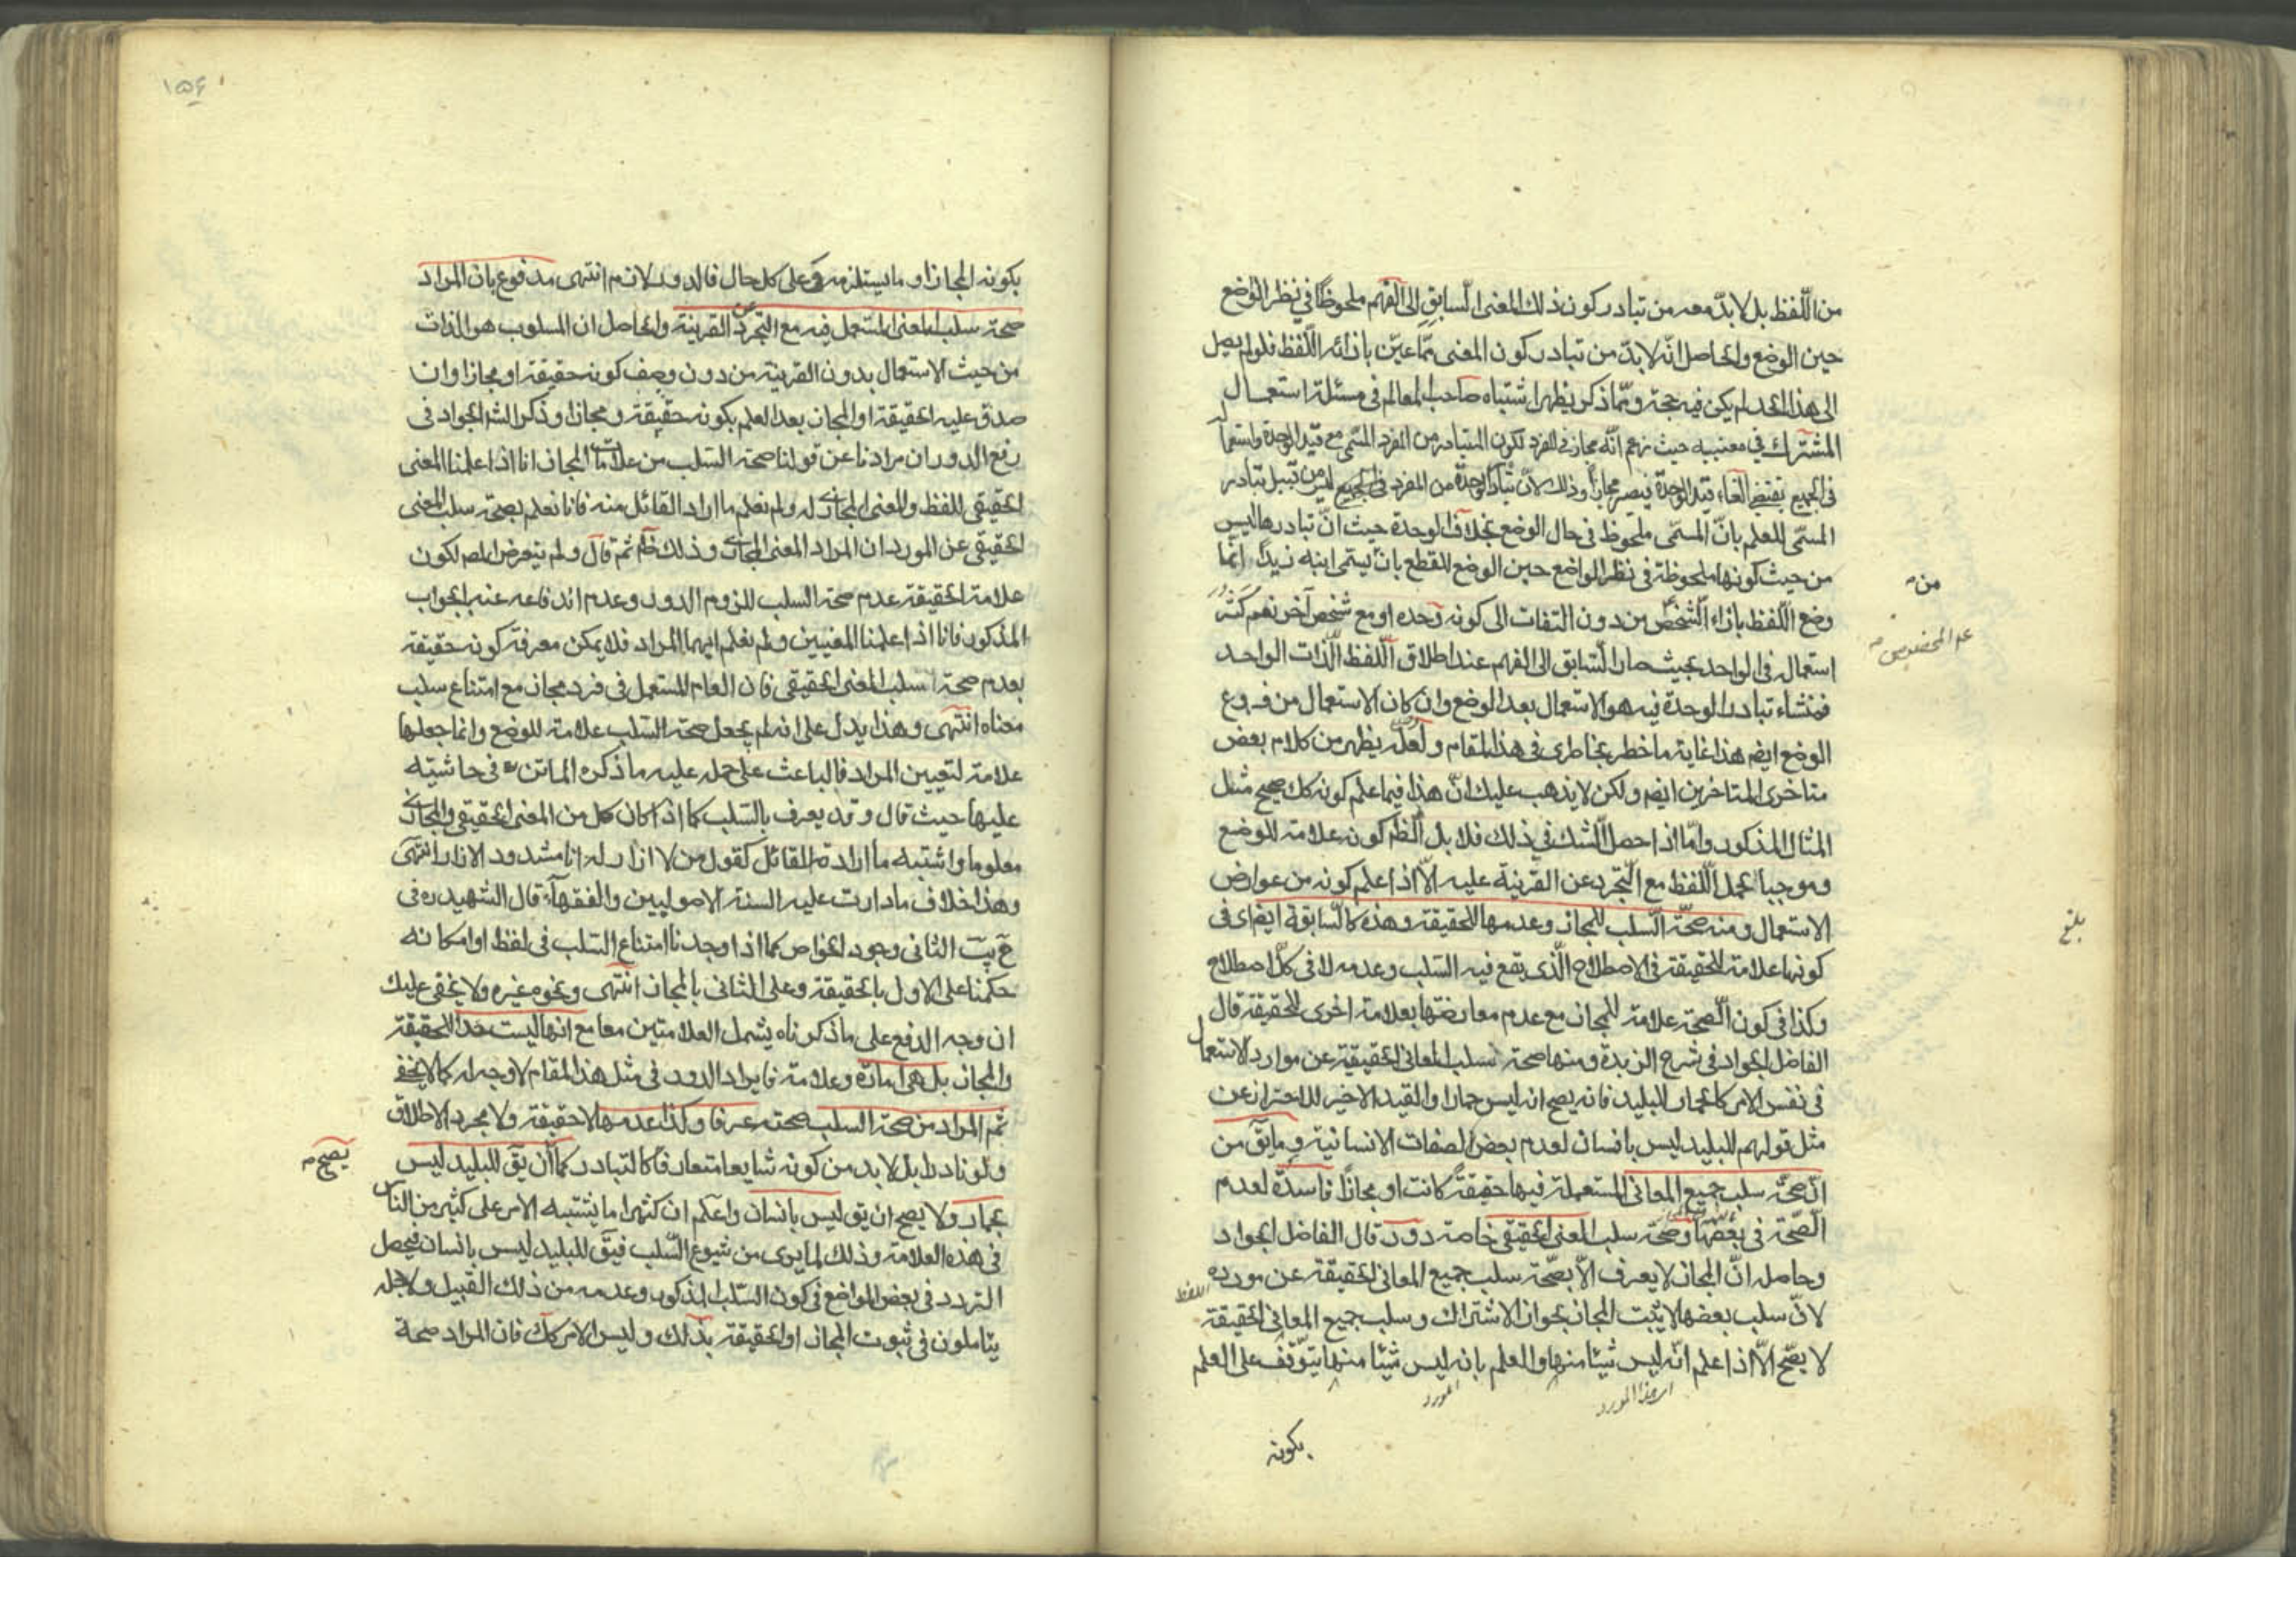 من اللّفظ بل لا بدّ معه من تبادر كون ذلك المعنى السّابق الى الفهم ملحوظًا في نظر الواضع
حين الوضع والحاصل انّه لا بدّ من تبادر كون المعنى ممّا عيّن بازائه اللّفظ فلو لم يصل
الى هذا الحد لم يكن فيه حجة وممّا ذكر يظهر اشتباه صاحب المعالم في مسئلة استعمال
المشترك في معنييه حيث زعم انّه مجاز في المفرد لكون المتبادر من المفرد المسمّى مع قيد الوحدة واستعما
في الجميع يقتضى الغاء قيد الوحدة فيصير مجازا وذلك لانّ تبادر الوحدة من المفرد في الجميع ليس من قبيل تبادر
المسمّى للعلم بانّ المسمّى ملحوظ في حال الوضع بخلاف الوحدة حيث انّ تبادرها ليس
من حيث كونها ملحوظة في نظر الواضع حين الوضع للقطع بان يسمّى ابنه زيدا انما
وضع اللّفظ بازاء الشّخص من دون التفات الى كونه وحده او مع شخص آخر نعم كثر
استعمال في الواحد بحيث صار السّابق الى الفهم عند اطلاق اللّفظ الذّات الواحد
فمنشاء تبادر الوحدة فيه هو الاستعمال بعد الوضع وان كان الاستعمال من فروع
الوضع ايضم هذا غاية ما خطر بخاطرى في هذا المقام ولعلّه يظهر من كلام بعض
متاخرى المتاخرين ايضم ولكن لا يذهب عليك انّ هذا فيما علم كونه كك صحيح مثل
المثال المذكور وامّا اذا حصل الشّك في ذلك فلا بل الظّم كونه علامة للوضع
وموجبا لحمل اللّفظ مع التّجرد عن القرينة عليه الّا اذا علم كونه من عوارض
الاستعمال ومنه صحّة السّلب للمجاز وعدمها للحقيقة وهذه كالسّابقة ايضا في
كونها علامة للحقيقة في الاصطلاح الّذى يقع فيه السّلب وعدمه لا في كلّ اصطلاح
وكذا في كون الصّحة علامة للمجاز مع عدم معارضتها بعلامة اخرى للحقيقة قال
الفاضل الجواد في شرح الزبدة ومنها صحة سلب المعانى الحقيقية عن موارد الاستعما
في نفس الامر كالحمار للبليد فانه يصح انه ليس حمارا والقيد الاخير للاحتراز عن
مثل قولهم للبليد ليس بانسان لعدم بعض الصفات الانسانية وما يقّ من
انّ صحّة سلب جميع المعانى المستعملة فيها حقيقةً كانت او مجازًا فاسدة لعدم
الصّحّة في بعضها وصحّة سلب المعنى الحقيقى خاصة دور قال الفاضل الجواد
وحاصله انّ المجاز لا يعرف الّا بصّحة سلب جميع المعانى الحقيقة عن مورده
اللفظ
لانّ سلب بعضها لا يثبت المجاز بجواز الاشتراك وسلب جميع المعانى الحقيقة
لا يصّح الّا اذا علم انّه ليس شيئا منها والعلم بانه ليس شيئا منها يتوقّف على العلم
اى هذا المورد
المورد
بكونه
من
علم المخصوص
بلغ
۱۵۶
بكونه المجاز او ما يستلزمه وعلى كل حال فالدور لازم انتهى مدفوع بان المراد
صحة سلب المعنى المستعمل فيه مع التجرد عن القرينة والحاصل ان المسلوب هو الذات
من حيث الاستعمال بدون القرينة من دون وصف كونه حقيقة او مجازا وان
صدق عليه الحقيقة او المجاز بعد العلم بكونه حقيقة ومجازا وذكر الشه الجواد في
رفع الدور ان مرادنا عن قولنا صحة السّلب من علامات المجاز انا اذا علمنا المعنى
الحقيقى للفظ والمعنى المجازى له ولم نعلم ما اراد القائل منه فانا نعلم بصحة سلب المعنى
الحقيقى عن المورد ان المراد المعنى المجازى وذلك ظم ثم قال ولم يتعرض المصم لكون
علامة الحقيقة عدم صحة السلب للزوم الدور وعدم اندفاعه عنه الجواب
المذكور فانا اذا علمنا المعنيين ولم نعلم ايهما المراد فلا يمكن معرفة كونه حقيقة
بعدم صحة سلب المعنى الحقيقى فان العام المستعمل في فرد مجاز مع امتناع سلب
معناه انتهى وهذا يدل على انه لم يجعل صحة السّلب علامة للوضع وانما جعلها
علامة لتعيين المراد فالباعث على حمله عليه ما ذكره الماتن ره في حاشيته
عليها حيث قال وقد يعرف بالسّلب كما اذا كان كل من المعنى الحقيقى والمجازى
معلوما واشتبه ما اراده القائل كقول من لا ازار له انا مشدود الازار انتهى
وهذا خلاف ما دارت عليه السنة الاصوليين والفقهآء قال الشهيد ره في
الثانى وجود الخواص كما اذا وجدنا امتناع السّلب في لفظ او امكانه
حكمنا على الاول بالحقيقة وعلى الثانى بالمجاز انتهى ونحوه غيره ولا يخفى عليك
ان وجه الدفع على ما ذكرناه يشمل العلامتين معا مع انها ليست حدا للحقيقة
والمجاز بل هى امارة وعلامة فايراد الدور في مثل هذا المقام لا وجه له كما لا يخفى
ثم المراد من صحة السلب صحته عرفا وكذا عدمها لا حقيقة ولا بمجرد الاطلاق
ولو نادرا بل لا بد من كونه شايعا متعارفا كالتبادر كما ان يقّ للبليد ليس
يصح
بحمار ولا يصح ان يق ليس بانسان واعلم ان كثيرا ما يشتبه الامر على كثير من الناس
في هذه العلامة وذلك لما يرى من شيوع السّلب فيقّ للبليد ليس بانسان فيحصل
التردد في بعض المواضع في كون السّلب المذكور وعدمه من ذلك القبيل ولاجله
يتاملون في ثبوت المجاز او الحقيقة بذلك وليس الامر كك فان المراد صحة